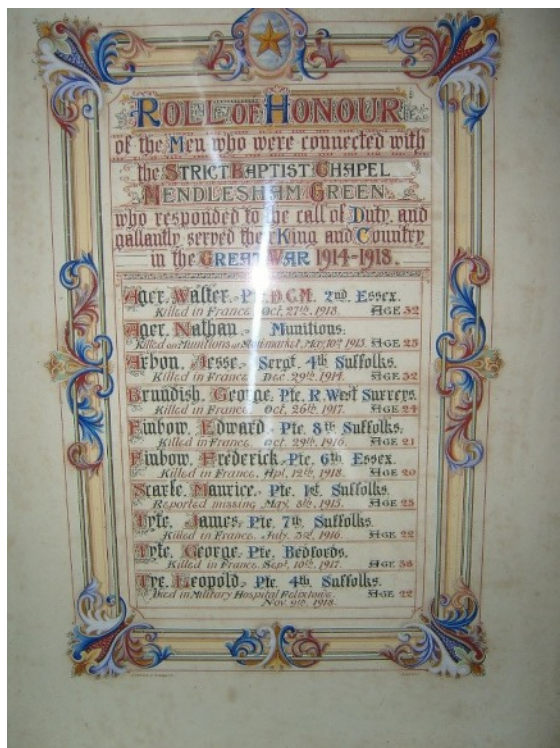 ROLL OF HONOUR
of the Men who were connected with
the STRICT BAPTIST CHAPEL
MENDLESHAM GREEN
who responded to the call of Duty, and
gallantly served their King and Country
in the GREAT WAR 1914-1918.
Ager. Walter. Pte. D.C.M. 2nd. Essex.
Killed in France. Oct. 27th. 1918. AGE 32
Ager. Nathan. Munitions.
Killed on Munitions at Stowmarket. May. 10th 1915. AGE 25
Arbon. Jesse. Sergt. 4th Suffolks.
Killed in France. Dec. 29th. 1914. AGE 32
Brundish. George. Pte. R. West Surreys.
Killed in France. Oct. 26th. 1917. AGE 24
Finbow. Edward. Pte. 8th Suffolks.
Killed in France. Oct. 29th. 1916. AGE 21
Finbow. Frederick. Pte. 6th. Essex.
Killed in France. Apl. 12th. 1918. AGE 20
Scarfe. Maurice. Pte. 1st. Suffolks.
Reported missing May. 8th. 1915. AGE 25
Tyte. James. Pte. 7th. Suffolks.
Killed in France. July. 3rd. 1916. AGE 22
Tyte. George. Pte. Bedfords.
Killed in France. Sept. 10th. 1917. AGE 38
Tye. Leopold. Pte. 4th. Suffolks.
Died in Military Hospital Felixtowe. AGE 22
Nov. 9th. 1918.